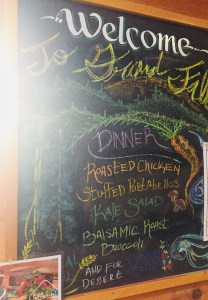 Welcome
To Grand Fall
DINNER
ROASTED CHICKEN
STUFFED PORTABELLOS
KALE SALAD
BALSAMIC ROAST
BROCCOLI
AND FOR
DESSERT